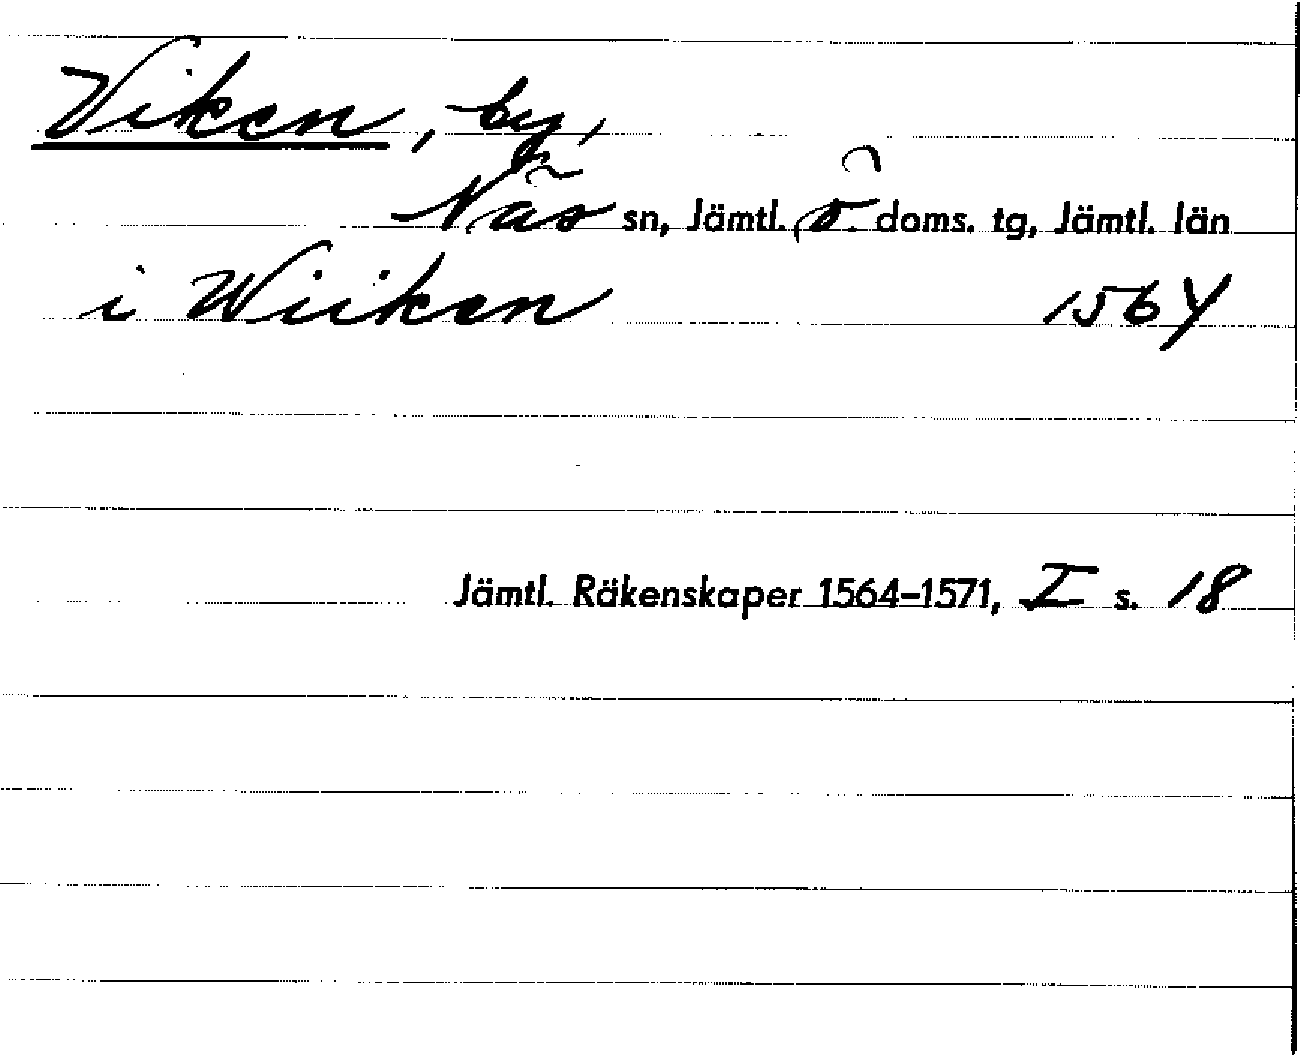 Viken, by,
Näs sn, Jämtl. ö. doms. tg, Jämtl. län
i Wiiken 1564
Jämtl. Räkenskaper 1564–1571, I s. 18